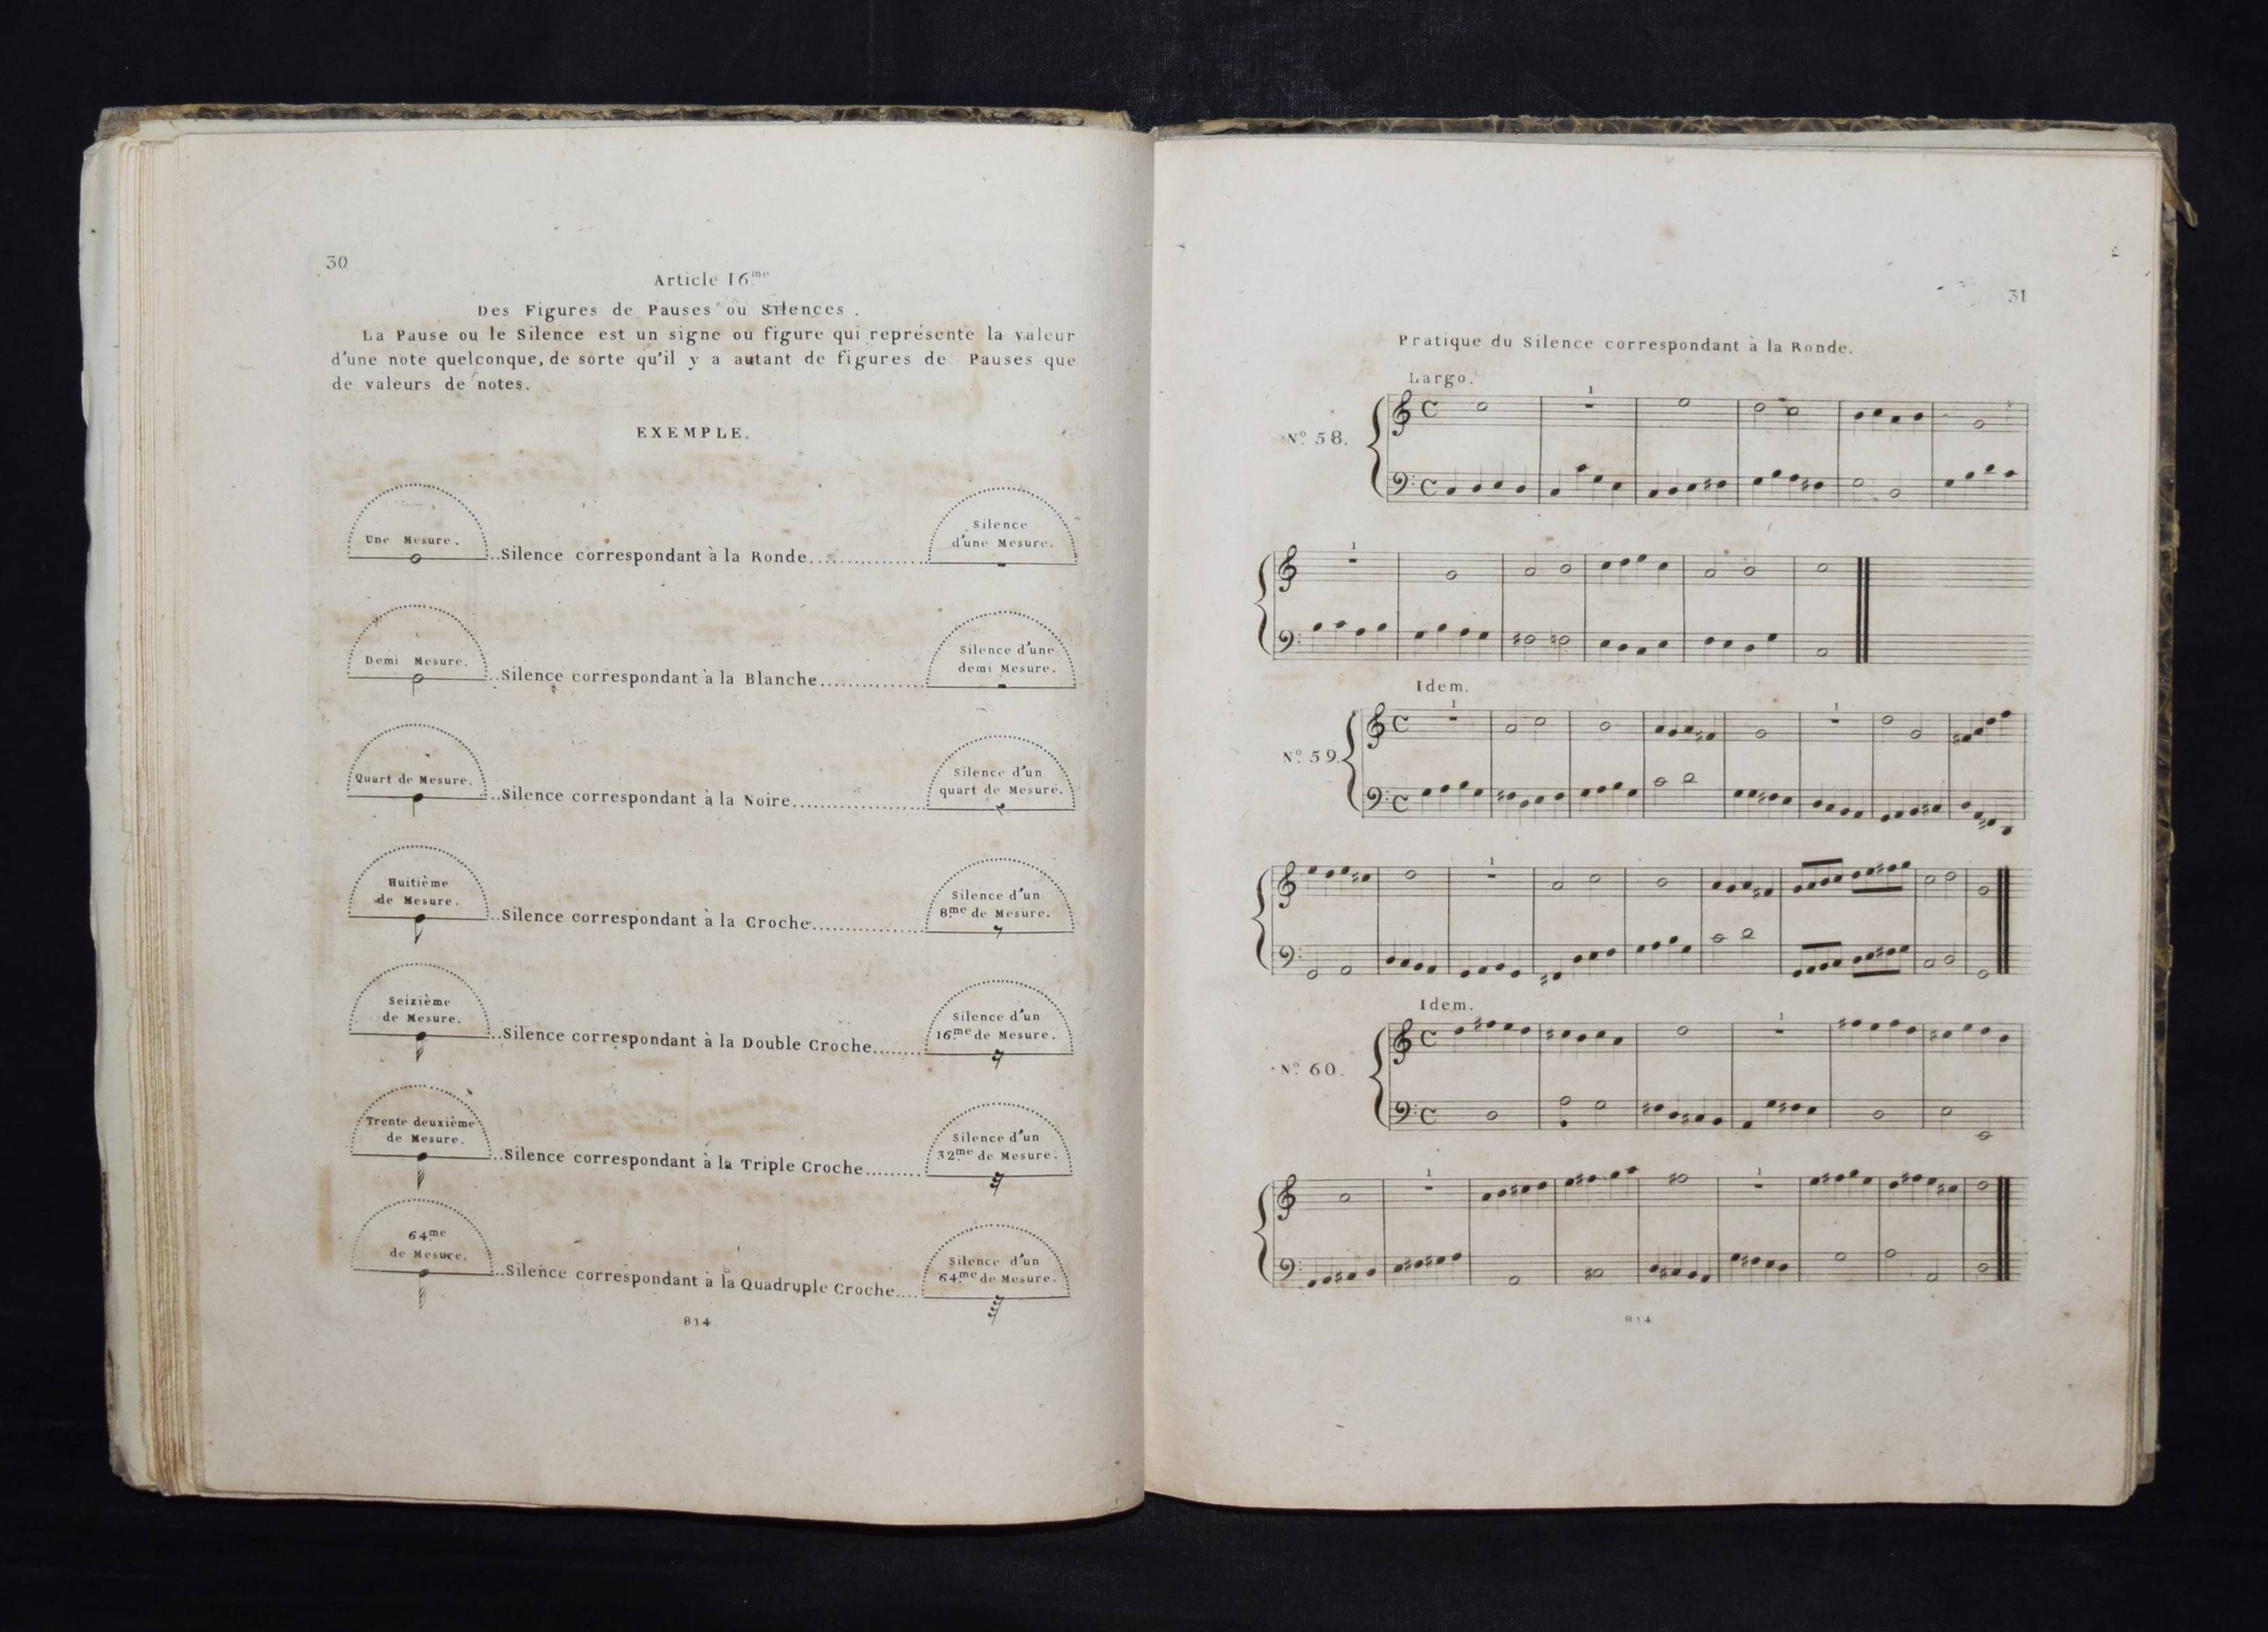 30
Article 16.me
Des Figures de Pauses ou Silences.
La Pause ou le Silence est un signe ou figure qui représente la valeur
d'une note quelconque, de sorte qu'il y a autant de figures de Pauses que
de valeurs de notes.
EXEMPLE.
Une Mesure. ..Silence correspondant à la Ronde.............. Silence d'une Mesure.
Demi Mesure. ..Silence correspondant à la Blanche.............. Silence d'une demi Mesure.
Quart de Mesure. ..Silence correspondant à la Noire.................. Silence d'un quart de Mesure.
Huitième de Mesure. ..Silence correspondant à la Croche............... Silence d'un 8.me de Mesure.
Seizième de Mesure. ..Silence correspondant à la Double Croche....... Silence d'un 16.me de Mesure.
Trente deuxième de Mesure. ..Silence correspondant à la Triple Croche........ Silence d'un 32.me de Mesure.
64.me de Mesure. ..Silence correspondant à la Quadruple Croche.... Silence d'un 64.me de Mesure.
814.
31
Pratique du Silence correspondant à la Ronde.
Largo.
1
N.o 58.
1
Idem.
1 1
N.o 59.
1
Idem.
1
N.o 60.
1 1
814